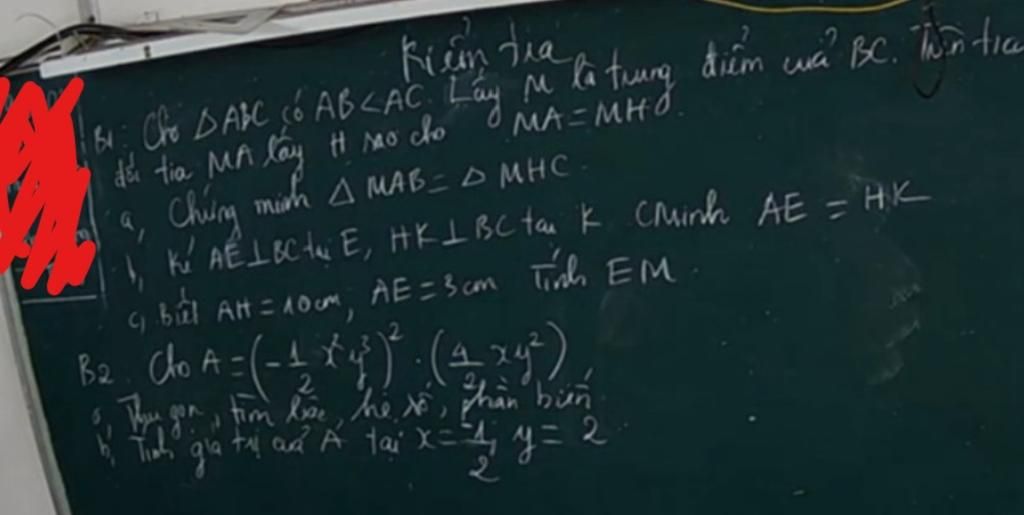 Kiểm tra
B1: Cho △ABC có AB < AC. Lấy M là trung điểm của BC. Trên tia
đối tia MA lấy H sao cho MA = MH.
a, Chứng minh △ MAB = △ MHC.
b, Kẻ AE ⊥ BC tại E, HK ⊥ BC tại K CMinh AE = HK
c, biết AH = 10cm, AE = 3cm Tính EM.
B2. Cho A = (-1/2 x²y³)² · (4/2 xy²)
a, Thu gọn, tìm bậc, hệ số, phần biến
b, Tính giá trị của A tại x = -1/2, y = 2.